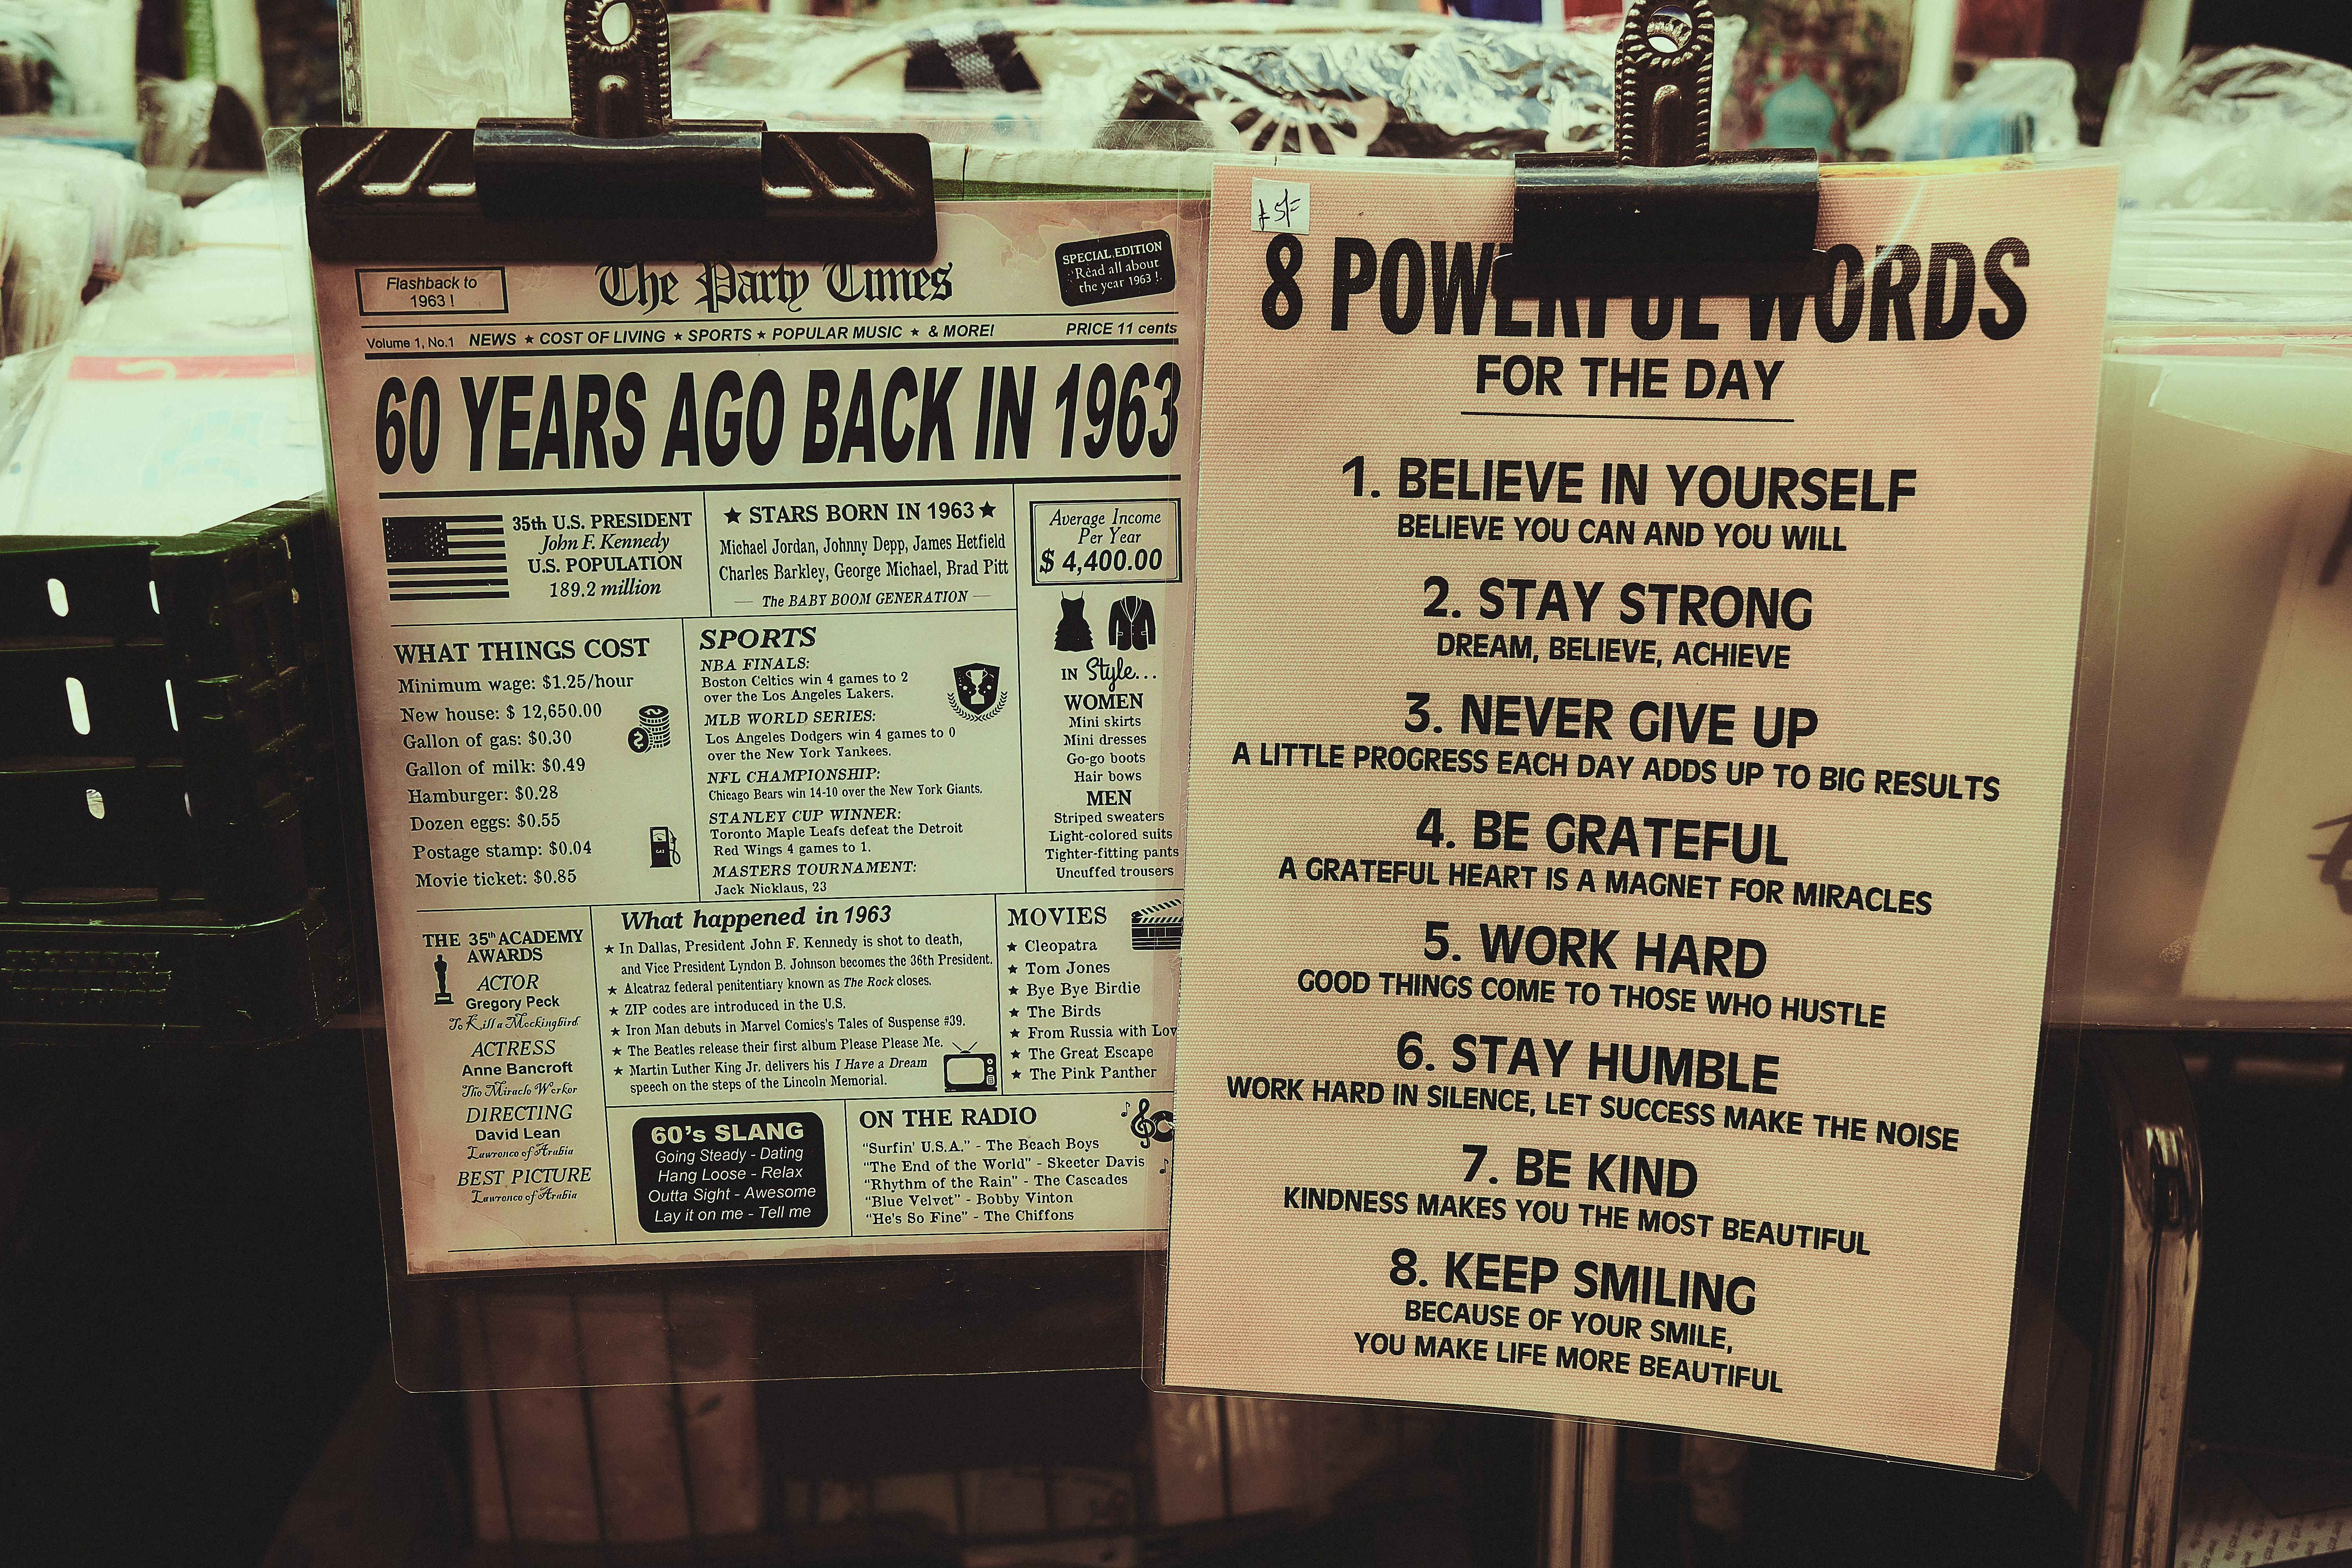 Flashback to
1963 !
The Party Times
SPECIAL EDITION
Read all about
the year 1963 !
Volume 1, No.1 NEWS ★ COST OF LIVING ★ SPORTS ★ POPULAR MUSIC ★ & MORE! PRICE 11 cents
60 YEARS AGO BACK IN 1963
35th U.S. PRESIDENT
John F. Kennedy
U.S. POPULATION
189.2 million
★ STARS BORN IN 1963 ★
Michael Jordan, Johnny Depp, James Hetfield
Charles Barkley, George Michael, Brad Pitt
The BABY BOOM GENERATION
Average Income
Per Year
$ 4,400.00
WHAT THINGS COST
Minimum wage: $1.25/hour
New house: $ 12,650.00
Gallon of gas: $0.30
Gallon of milk: $0.49
Hamburger: $0.28
Dozen eggs: $0.55
Postage stamp: $0.04
Movie ticket: $0.85
GAS
SPORTS
NBA FINALS:
Boston Celtics win 4 games to 2
over the Los Angeles Lakers.
MLB WORLD SERIES:
Los Angeles Dodgers win 4 games to 0
over the New York Yankees.
NFL CHAMPIONSHIP:
Chicago Bears win 14-10 over the New York Giants.
STANLEY CUP WINNER:
Toronto Maple Leafs defeat the Detroit
Red Wings 4 games to 1.
MASTERS TOURNAMENT:
Jack Nicklaus, 23
IN Style...
WOMEN
Mini skirts
Mini dresses
Go-go boots
Hair bows
MEN
Striped sweaters
Light-colored suits
Tighter-fitting pants
Uncuffed trousers
THE 35th ACADEMY
AWARDS
ACTOR
Gregory Peck
To Kill a Mockingbird
ACTRESS
Anne Bancroft
The Miracle Worker
DIRECTING
David Lean
Lawrence of Arabia
BEST PICTURE
Lawrence of Arabia
What happened in 1963
★ In Dallas, President John F. Kennedy is shot to death,
and Vice President Lyndon B. Johnson becomes the 36th President.
★ Alcatraz federal penitentiary known as The Rock closes.
★ ZIP codes are introduced in the U.S.
★ Iron Man debuts in Marvel Comics's Tales of Suspense #39.
★ The Beatles release their first album Please Please Me.
★ Martin Luther King Jr. delivers his I Have a Dream
speech on the steps of the Lincoln Memorial.
MOVIES
★ Cleopatra
★ Tom Jones
★ Bye Bye Birdie
★ The Birds
★ From Russia with Lov
★ The Great Escape
★ The Pink Panther
60's SLANG
Going Steady - Dating
Hang Loose - Relax
Outta Sight - Awesome
Lay it on me - Tell me
ON THE RADIO
"Surfin' U.S.A." - The Beach Boys
"The End of the World" - Skeeter Davis
"Rhythm of the Rain" - The Cascades
"Blue Velvet" - Bobby Vinton
"He's So Fine" - The Chiffons
£5/=
8 POWERFUL WORDS
FOR THE DAY
1. BELIEVE IN YOURSELF
BELIEVE YOU CAN AND YOU WILL
2. STAY STRONG
DREAM, BELIEVE, ACHIEVE
3. NEVER GIVE UP
A LITTLE PROGRESS EACH DAY ADDS UP TO BIG RESULTS
4. BE GRATEFUL
A GRATEFUL HEART IS A MAGNET FOR MIRACLES
5. WORK HARD
GOOD THINGS COME TO THOSE WHO HUSTLE
6. STAY HUMBLE
WORK HARD IN SILENCE, LET SUCCESS MAKE THE NOISE
7. BE KIND
KINDNESS MAKES YOU THE MOST BEAUTIFUL
8. KEEP SMILING
BECAUSE OF YOUR SMILE,
YOU MAKE LIFE MORE BEAUTIFUL